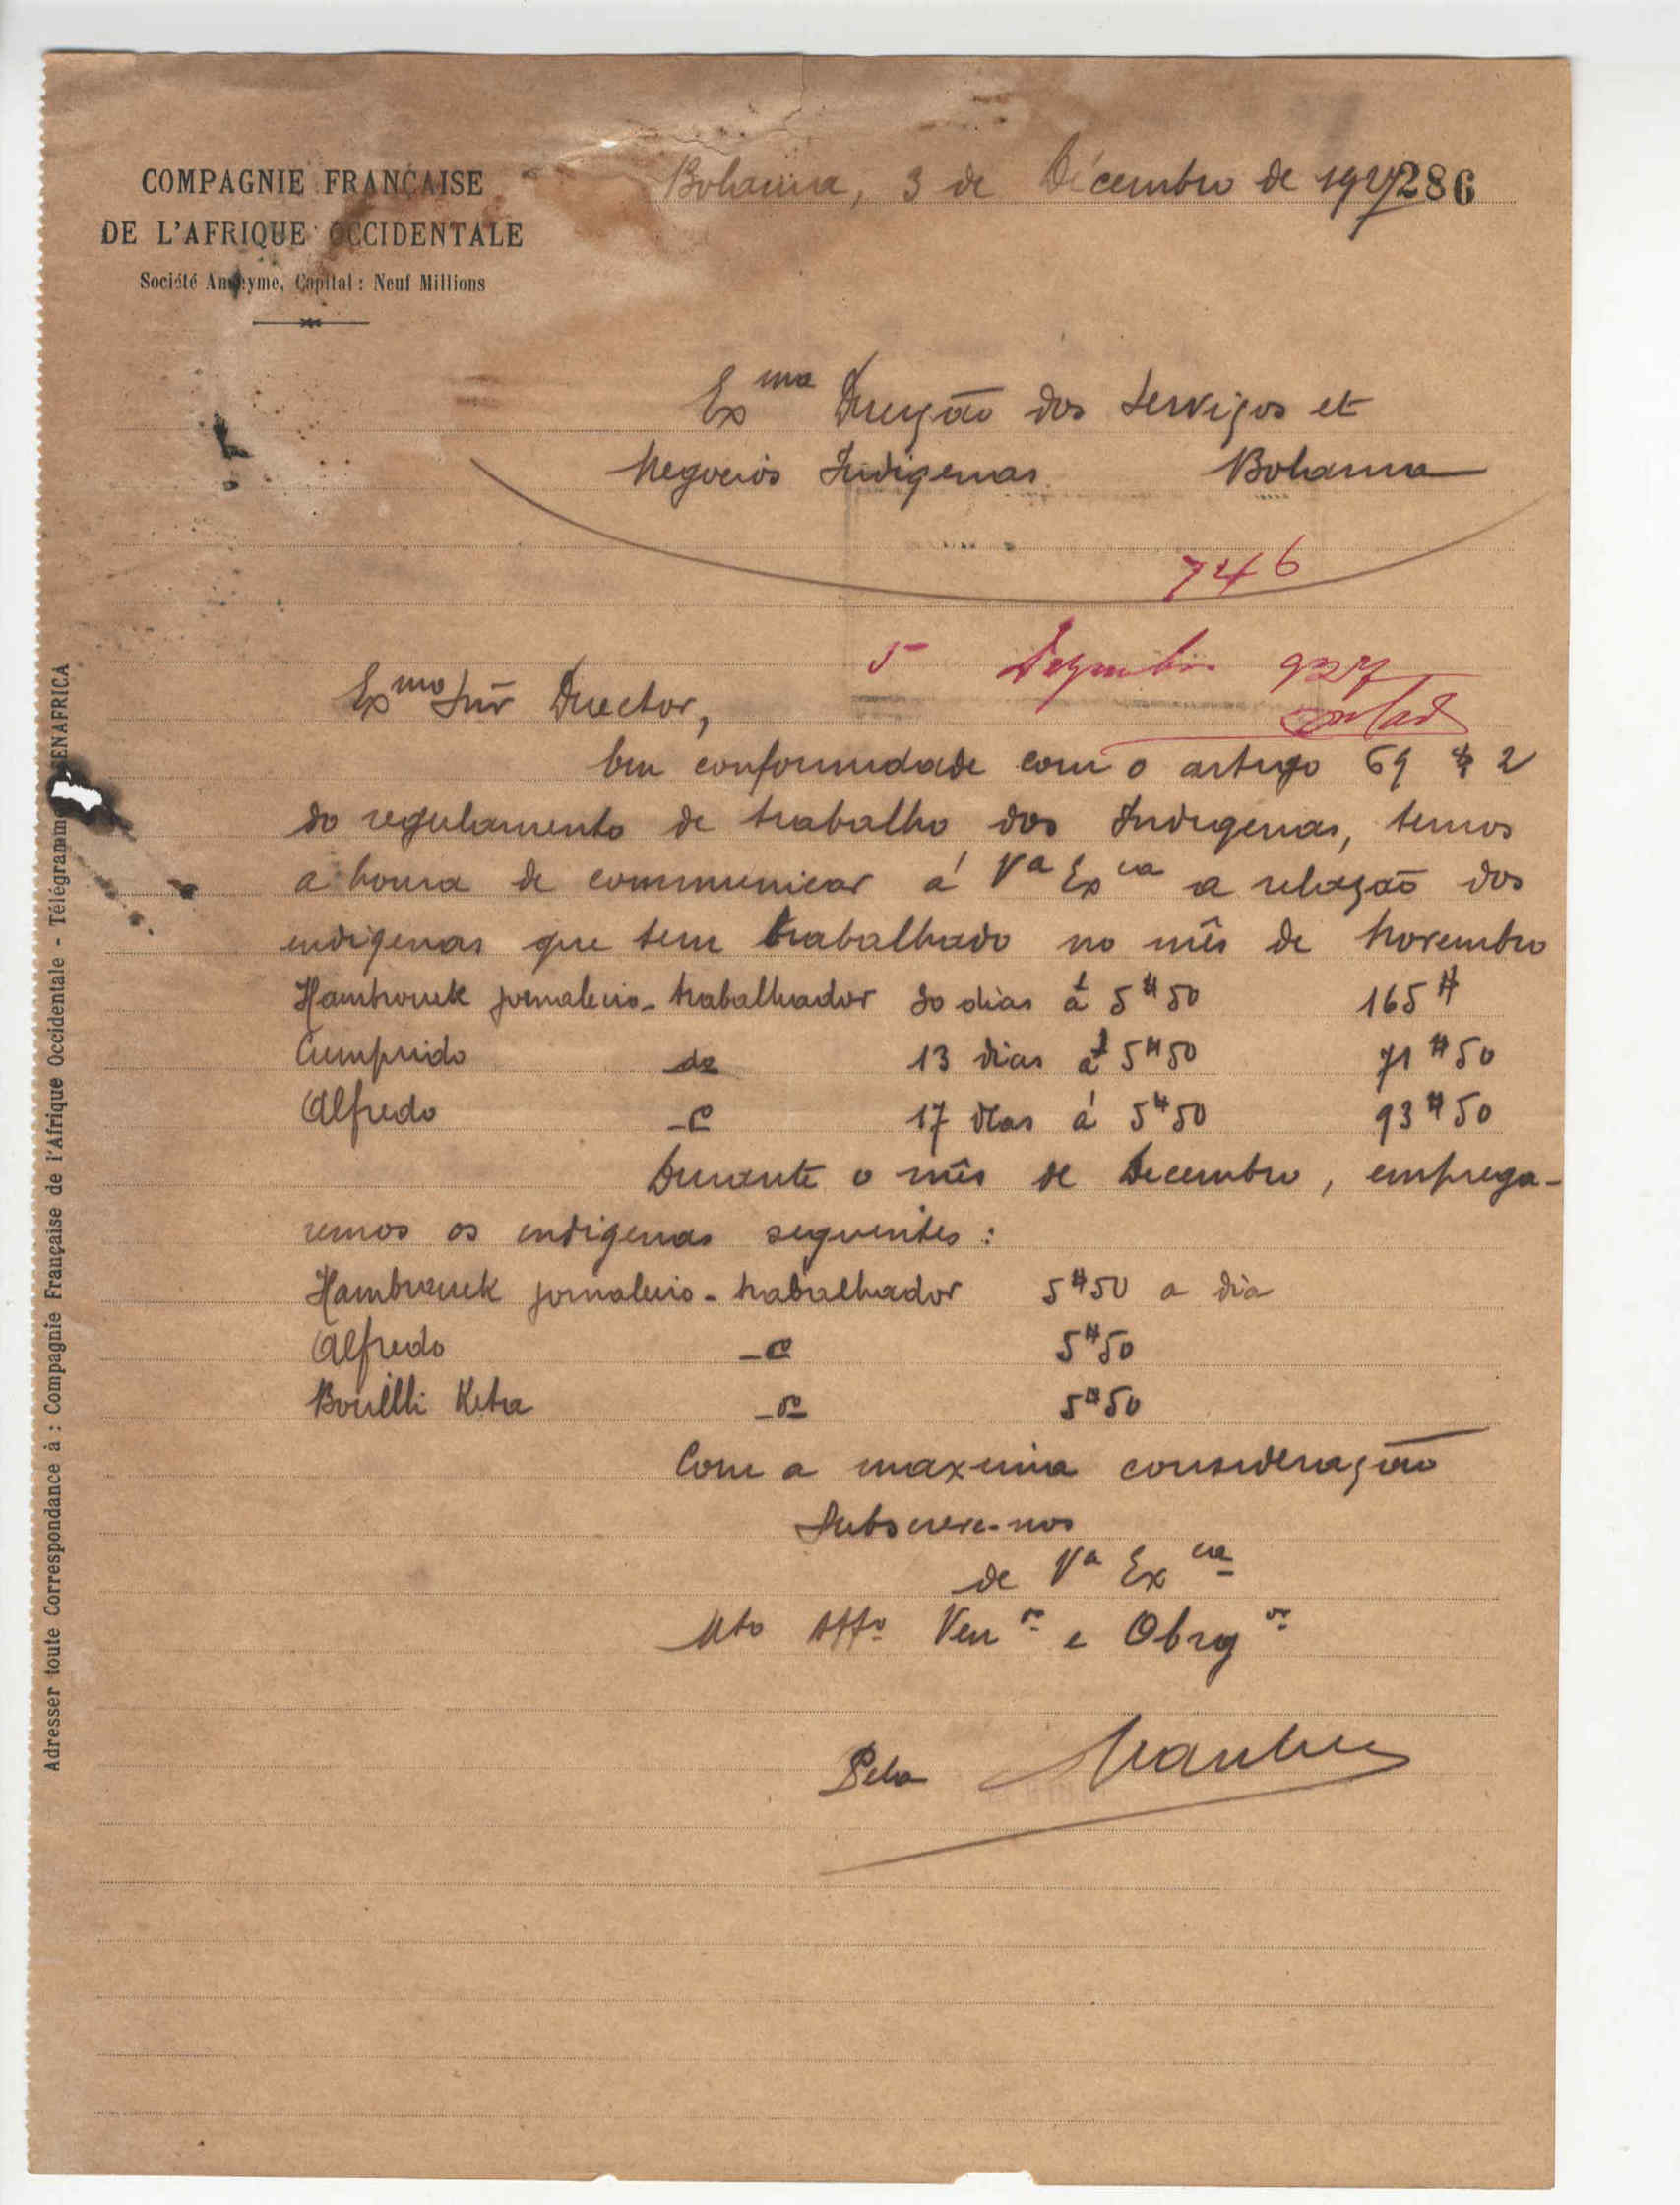 COMPAGNIE FRANÇAISE
DE L'AFRIQUE OCCIDENTALE
Société Anonyme, Capital : Neuf Millions
Bolama, 3 de Décembro de 1927
286
Exma Direyção dos Serviços et
Negocios Indigenas Bolama
746
5 Dezembro 927
Exmo Snr Director,
Em conformidade com o artigo 69 § 2
do regulamento de trabalho dos Indigenas, temos
a honra de communicar á Va Excia a relação dos
indigenas que tem trabalhado no mês de Novembro
Hambrouck jornaleiro-trabalhador 30 dias á 5$50 165$
Cumprido do 13 dias á 5$50 71$50
Alfredo 17 dias á 5$50 93$50
Durante o mês de Decembro, emprega-
remos os indigenas seguentes :
Hambrouck jornaleiro-trabalhador 5$50 a dia
Alfredo 5$50
Keita 5$50
Com a maxima consideração
Subscreve-nos
de Va Excia
Mto Atto Venor e Obrgo
Pela
Adresser toute Correspondance à : Compagnie Française de l'Afrique Occidentale - Télégramme SENAFRICA